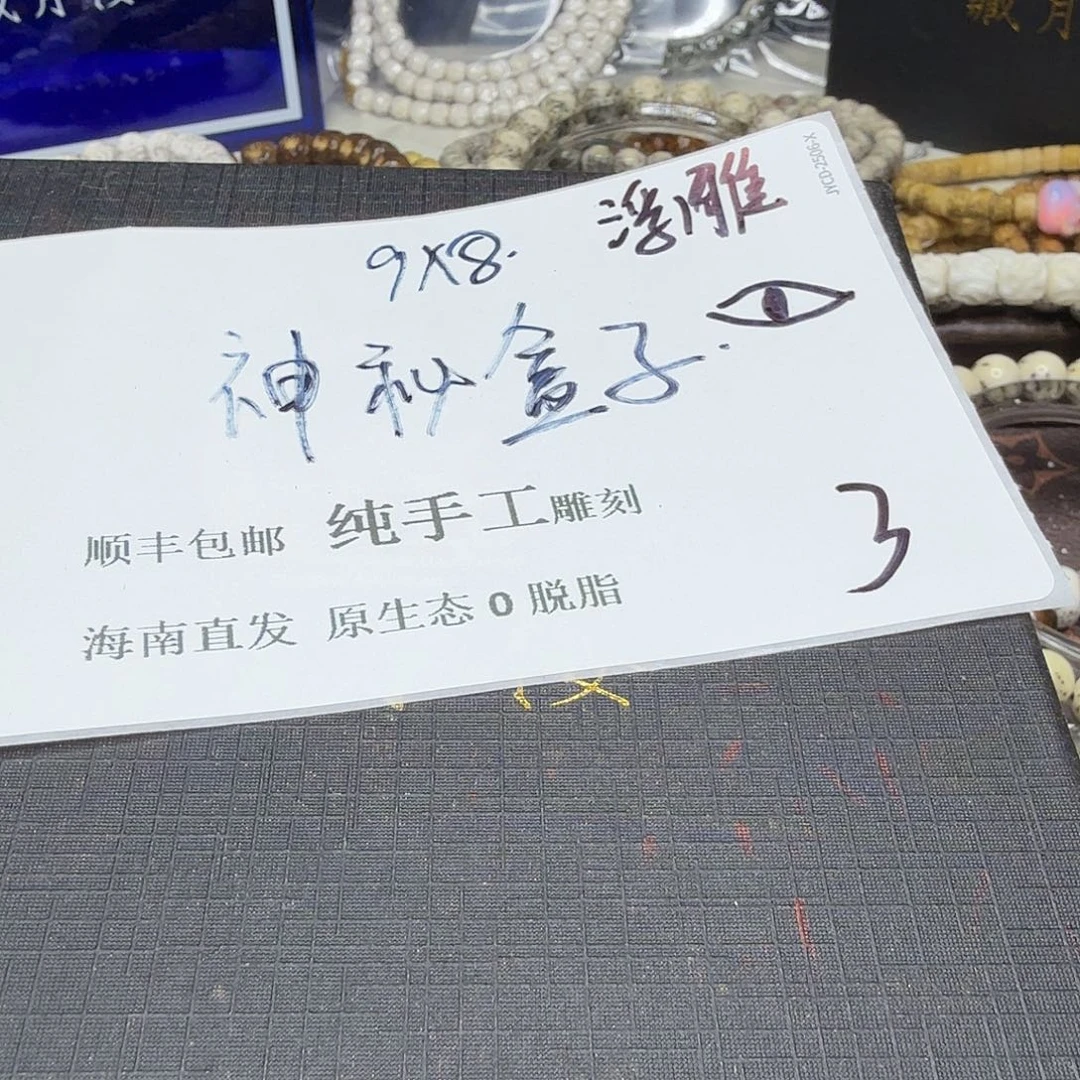 藏月
JYCD-2506-X
浮雕
9X8.
神秘盒子.
3
顺丰包邮 纯手工雕刻
海南直发 原生态0脱脂